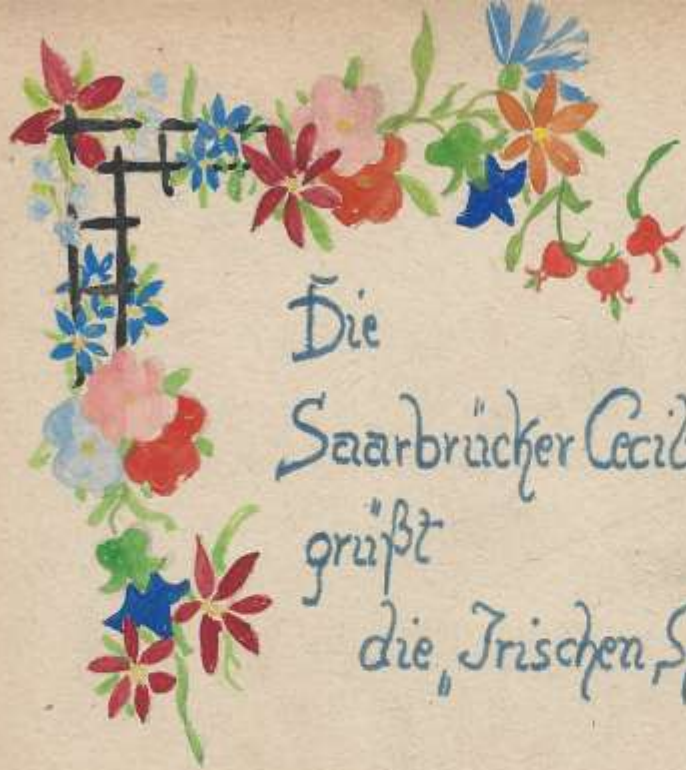 Die
Saarbrücker Cecil
grüßt
die „Irischen S